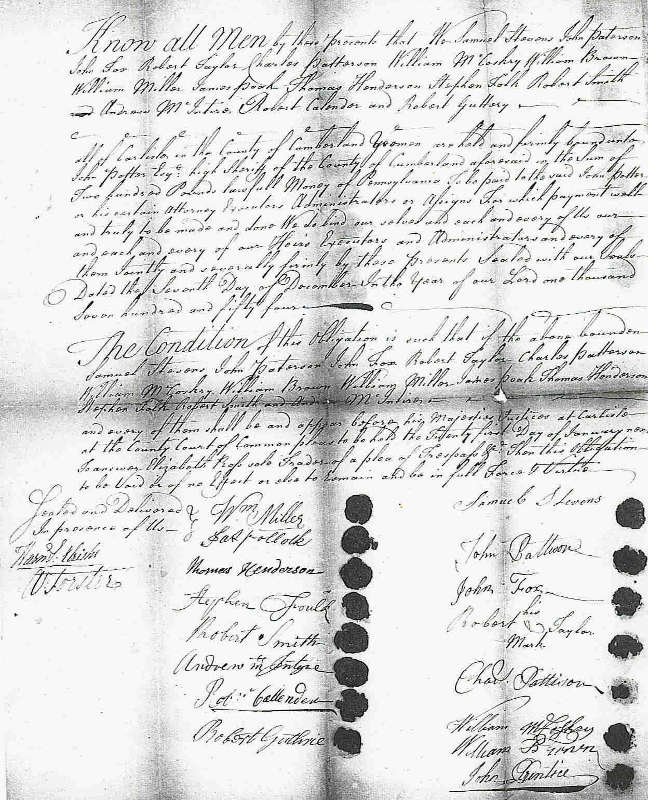 Know all Men by these Presents that We Samuel Stevens John Paterson
John Fox Robert Taylor Charles Patterson William McCoskry William Brown
William Miller James Poak Thomas Henderson Stephen Folk Robert Smith
Andrew McIntire Robert Calender and Robert Guttery
all of Carlisle in the County of Cumberland Yeomen are held and firmly bound unto
John Potter Esqr. high Sheriff of the County of Cumberland aforesaid in the Sum of
Two hundred Pounds lawfull Money of Pennsylvania To be paid to the said John Potter
or his certain Attorney Executors Administrators or Assigns For which payment well
and truly to be made and done We do bind our selves and each and every of Us our
and each and every of our Heirs Executors and Administrators and every of
them Jointly and severally firmly by these Presents Sealed with our Seals
Dated the Seventh Day of December In the Year of our Lord one thousand
Seven hundred and fifty four
The Condition of this Obligation is such that if the above bounden
Samuel Stevens John Paterson John Fox Robert Taylor Charles Patterson
William McCoskry William Brown William Miller James Poak Thomas Henderson
Stephen Folk Robert Smith and Andrew McIntire
and every of them shall be and appear before his Majesties Justices at Carlisle
at the County Court of Common pleas to be held the Twenty first Day of January next
To answer Elizabeth Ross sole Trader of a plea of Trespass &c Then this Obligation
to be Void or of no Effect or else to remain and be in full Force & Virtue
Sealed and Delivered
In presence of Us
W Forster
Wm Miller
Jas Pollock
Thomas Henderson
Stephen Foulk
Robert Smith
Andrew McIntyre
Robt Callender
Robert Guthrie
Samuel Stevens
John Pattison
John Fox
Robert his Taylor
Mark
Chas. Pattison
William McCoskry
William Brown
John Prentice